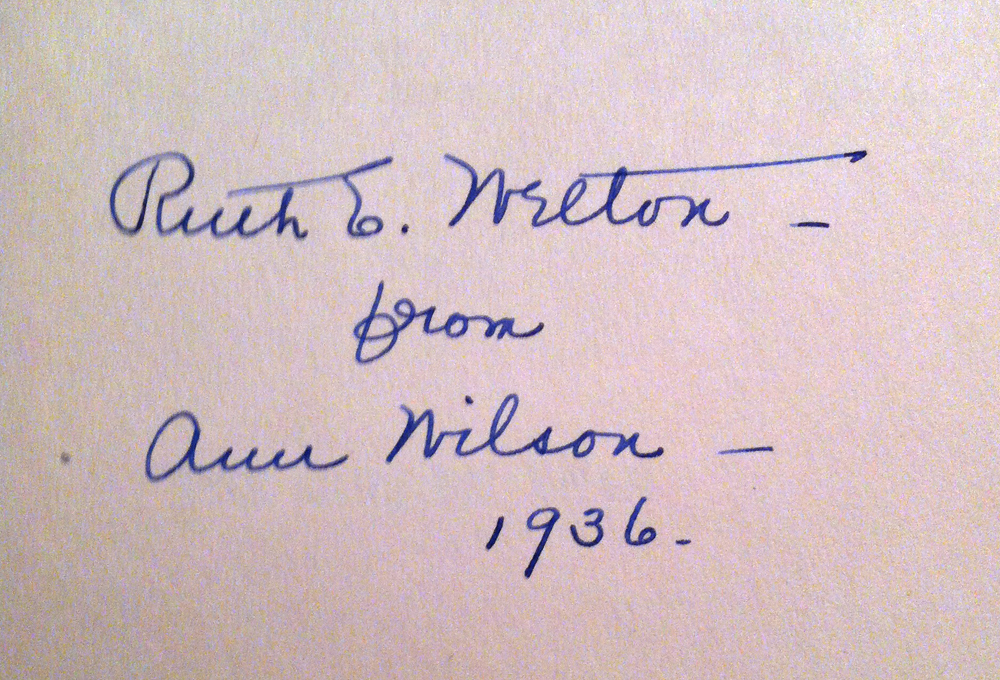 Ruth E. Welton -
from
Ann Wilson -
1936.